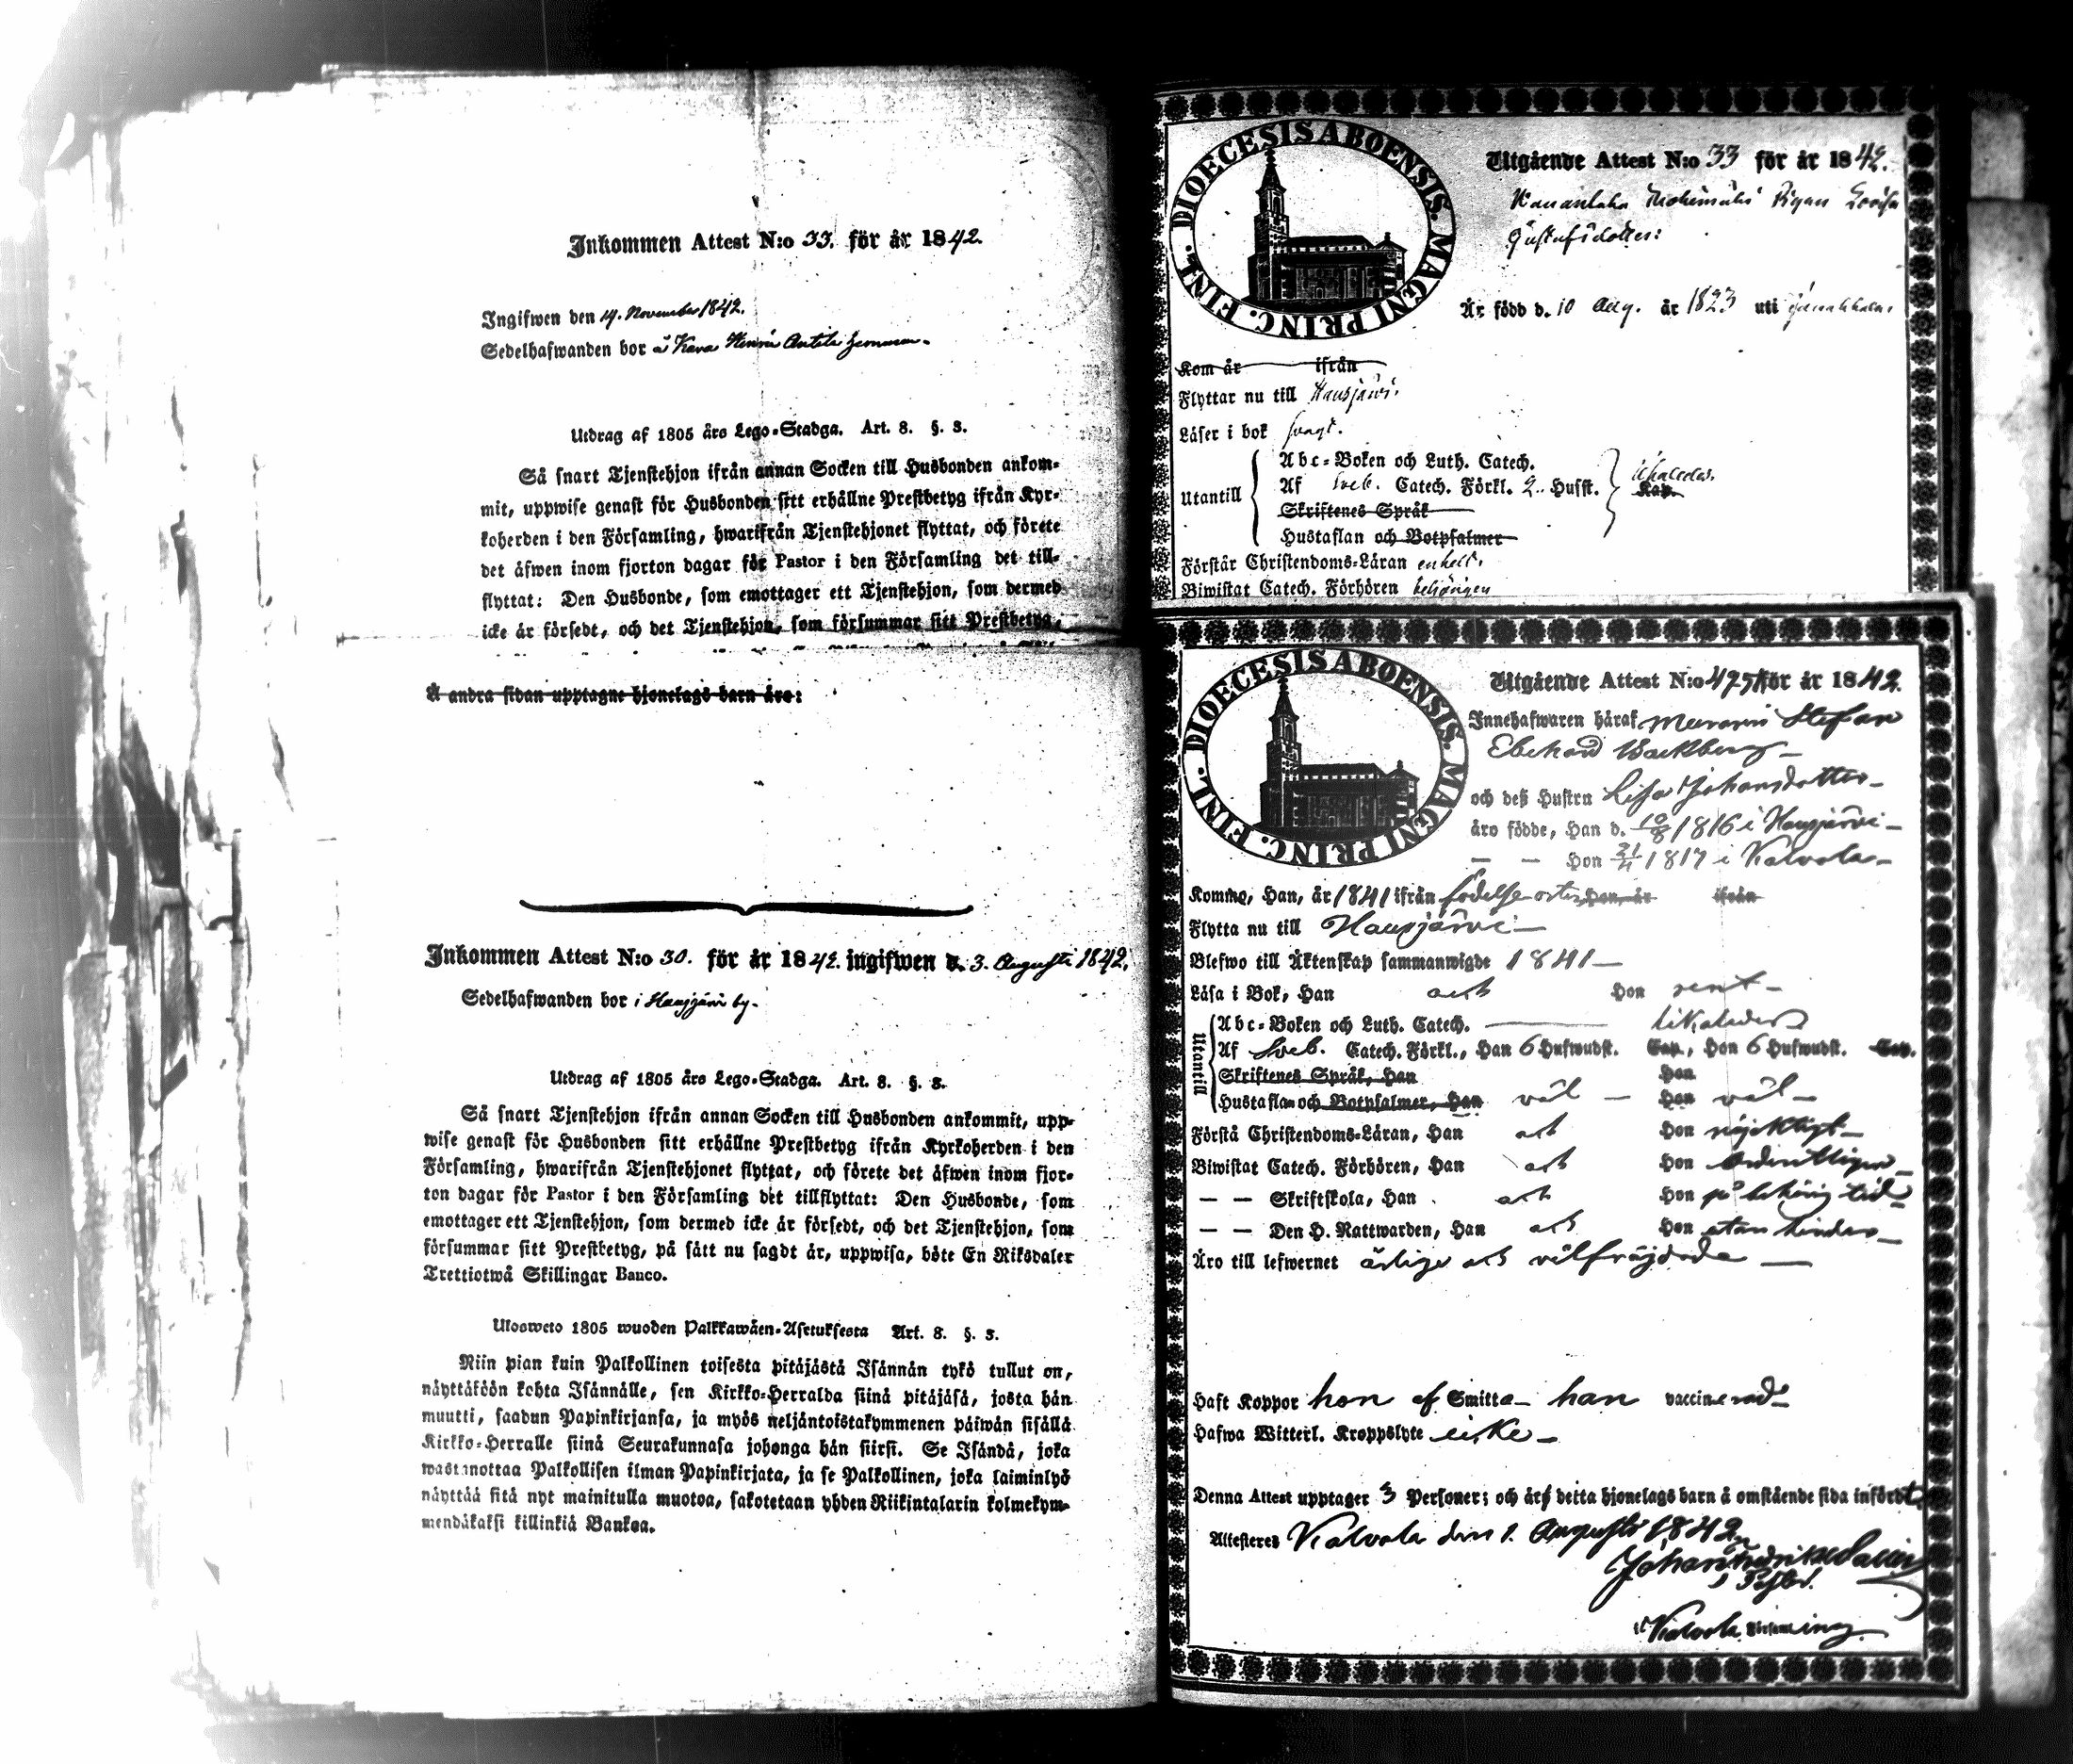 Inkommen Attest N:o 33. för år 1842.
Ingifwen den 14. November 1842.
Sedelhafwanden bor å Kara
Utdrag af 1805 års Lego-Stadga. Art. 8. §. 3.
Så snart Tjenstehjon ifrån annan Socken till Husbonden ankom-
mit, uppwise genast för Husbonden sitt erhållne Prestbetyg ifrån Kyr-
koherden i den Församling, hwarifrån Tjenstehjonet flyttat, och förete
det äfwen inom fjorton dagar för Pastor i den Församling det till-
flyttat: Den Husbonde, som emottager ett Tjenstehjon, som dermed
icke är försedt, och det Tjenstehjon, som försummar sitt Prestbetyg,
Å andra sidan upptagne hjonelags barn äro:
Inkommen Attest N:o 30. för år 1842. ingifwen d. 3. Augusti 1842.
Sedelhafwanden bor i Hausjärvi by.
Utdrag af 1805 års Lego-Stadga. Art. 8. §. 3.
Så snart Tjenstehjon ifrån annan Socken till Husbonden ankommit, upp-
wise genast för Husbonden sitt erhållne Prestbetyg ifrån Kyrkoherden i den
Församling, hwarifrån Tjenstehjonet flyttat, och förete det äfwen inom fjor-
ton dagar för Pastor i den Församling det tillflyttat: Den Husbonde, som
emottager ett Tjenstehjon, som dermed icke är försedt, och det Tjenstehjon, som
försummar sitt Prestbetyg, på sätt nu sagdt är, uppwisa, böte En Riksdaler
Trettiotwå Skillingar Banco.
Ulosweto 1805 wuoden Palkkawäen-Asetuksesta Art. 8. §. 3.
Niin pian kuin Palkollinen toisesta pitäjästä Isännän tykö tullut on,
näyttäköön kohta Isännälle, sen Kirkko-Herralda siinä pitäjäsä, josta hän
muutti, saadun Papinkirjansa, ja myös neljäntoistakymmenen päiwän sisällä
Kirkko-Herralle siinä Seurakunnasa johonga hän siirsi. Se Isändä, joka
wastanottaa Palkollisen ilman Papinkirjata, ja se Palkollinen, joka laiminlyö
näyttää sitä nyt mainitulla muotoa, sakotetaan yhden Riikintalarin kolmekym-
mendäkaksi killinkiä Bankoa.
DIOECESIS ABOENSIS. MAGNI PRINC. FINL.
Utgående Attest N:o 33 för år 1842.
Pigan Lovisa
Gustafsdotter:
Är född d. 10 Aug. år 1823 uti Janakkala
Kom år ifrån
Flyttar nu till Hausjärvi.
Läser i bok svagt.
Utantill
Abc-Boken och Luth. Catech.
Af Sveb. Catech. Förkl. 2 Hufst. Kap.
Skriftenes Språk
Hustaflan och Botpsalmer
Förstår Christendoms-Läran enkelt.
Biwistat Catech. Förhören behörigen
DIOECESIS ABOENSIS. MAGNI PRINC. FINL.
Utgående Attest N:o 475 för år 1842.
Innehafwaren häraf Muraren Stefan
Eberhard Backberg
och deß Hustru Lisa Johansdotter
äro födde, Han d. 10/8 1816 i Hausjärvi
— — Hon 21/4 1817 i Kalvola
Kommo, Han, år 1841 ifrån födelse orten, Hon, år ifrån
Flytta nu till Hausjärvi
Blefwo till Äktenskap sammanwigde 1841
Läsa i Bok, Han och Hon rent
Utantill
Abc-Boken och Luth. Catech. likaledes
Af Sveb. Catech. Förkl., Han 6 Hufwudst. Cap., Hon 6 Hufwudst. Cap.
Skriftenes Språk, Han Hon
Hustaflan och Botpsalmer, Han väl Hon väl
Förstå Christendoms-Läran, Han och Hon nöjaktigt
Biwistat Catech. Förhören, Han och Hon ordentligen
— — Skriftskola, Han och Hon på behörig tid
— — Den H. Nattwarden, Han och Hon utan hinder
Äro till lefwernet ärlige och välfräjdade
Haft Koppor hon af Smitta han vaccinerad
Hafwa Witterl. Kroppslyte icke
Denna Attest upptager 3 Personer; och är detta hjonelags barn å omstående sida infördt.
Attesteres Kalvola den 1. Augusti 1842
i Kalvola Församling